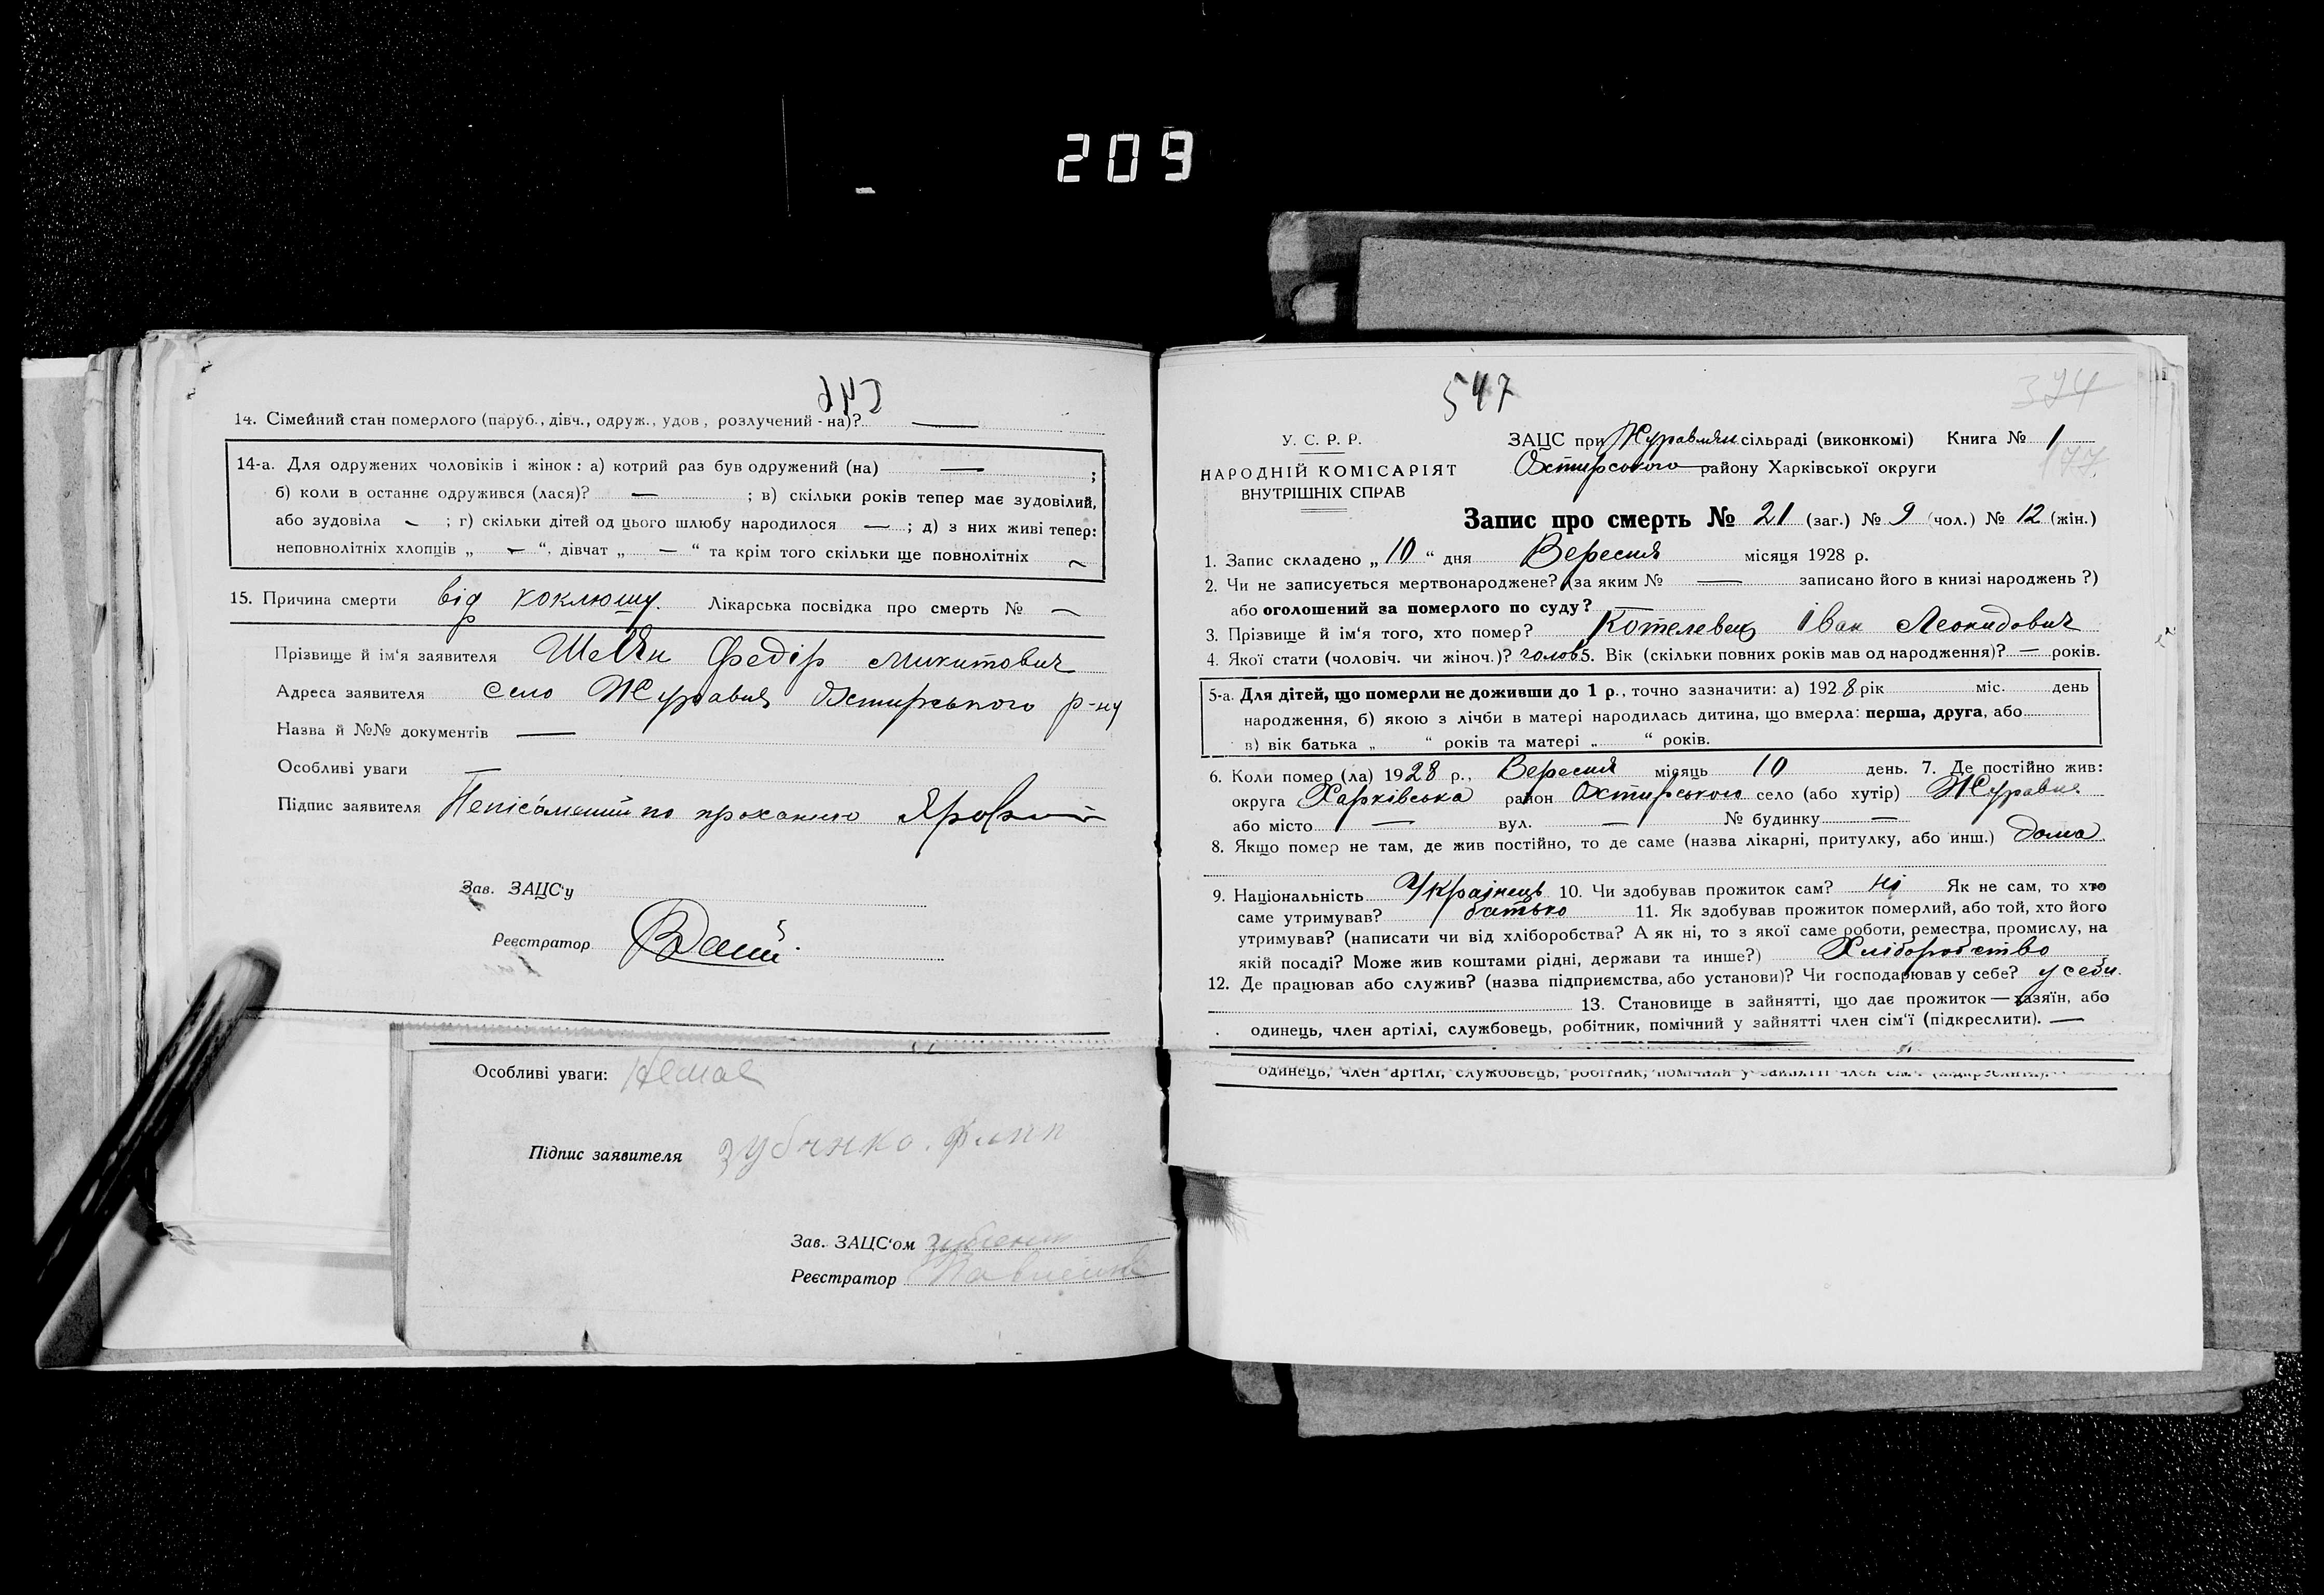 209
14. Сімейний стан померлого (паруб., дівч., одруж., удов, розлучений-на)? —
14-а. Для одружених чоловіків і жінок: а) котрий раз був одружений (на) — ;
б) коли в останнє одружився (лася)? — ; в) скільки років тепер має зудовілий,
або зудовіла — ; г) скільки дітей од цього шлюбу народилося — ; д) з них живі тепер:
неповнолітніх хлопців „ — “, дівчат „ — “ та крім того скільки ще повнолітніх —
15. Причина смерти від коклюшу. Лікарська посвідка про смерть № —
Прізвище й ім'я заявителя Федір Микитович
Адреса заявителя село Журавня Охтирського р-ну
Назва й №№ документів —
Особливі уваги —
Підпис заявителя Непісьмений по проханню Яровий
Зав. ЗАЦС'у
Реєстратор
Особливі уваги: Немає
Підпис заявителя
Зав. ЗАЦС'ом
Реєстратор
547
374
У. С. Р. Р.
НАРОДНІЙ КОМІСАРІЯТ
ВНУТРІШНІХ СПРАВ
ЗАЦС при Журавлян сільраді (виконкомі) Книга № 1
Охтирського району Харківської округи
177
Запис про смерть № 21 (заг.) № 9 (чол.) № 12 (жін.)
1. Запис складено „10“ дня Вересня місяця 1928 р.
2. Чи не записується мертвонароджене? (за яким № — записано його в книзі народжень?)
або оголошений за померлого по суду? —
3. Прізвище й ім'я того, хто помер? Котелевец Іван Леонидович
4. Якої стати (чоловіч. чи жіноч.)? чолов 5. Вік (скільки повних років мав од народження)? — років.
5-а. Для дітей, що померли не доживши до 1 р., точно зазначити: а) 1928 рік міс. день
народження, б) якою з лічби в матері народилась дитина, що вмерла: перша, друга, або
в) вік батька „ “ років та матері „ “ років.
6. Коли помер (ла) 1928 р., Вересня місяць 10 день. 7. Де постійно жив:
округа Харківська район Охтирського село (або хутір) Журавня
або місто — вул. — № будинку —
8. Якщо помер не там, де жив постійно, то де саме (назва лікарні, притулку, або инш.) дома
9. Національність Українець 10. Чи здобував прожиток сам? ні Як не сам, то хто
саме утримував? батько 11. Як здобував прожиток померлий, або той, хто його
утримував? (написати чи від хліборобства? А як ні, то з якої саме роботи, ремества, промислу, на
якій посаді? Може жив коштами рідні, держави та инше?) Хліборобство
12. Де працював або служив? (назва підприємства, або установи)? Чи господарював у себе? у себе.
13. Становище в зайнятті, що дає прожиток — хазяїн, або
одинець, член артілі, службовець, робітник, помічний у зайнятті член сім'ї (підкреслити). —
одинець, член артілі, службовець, робітник, помічний у зайнятті член сім'ї (підкреслити).